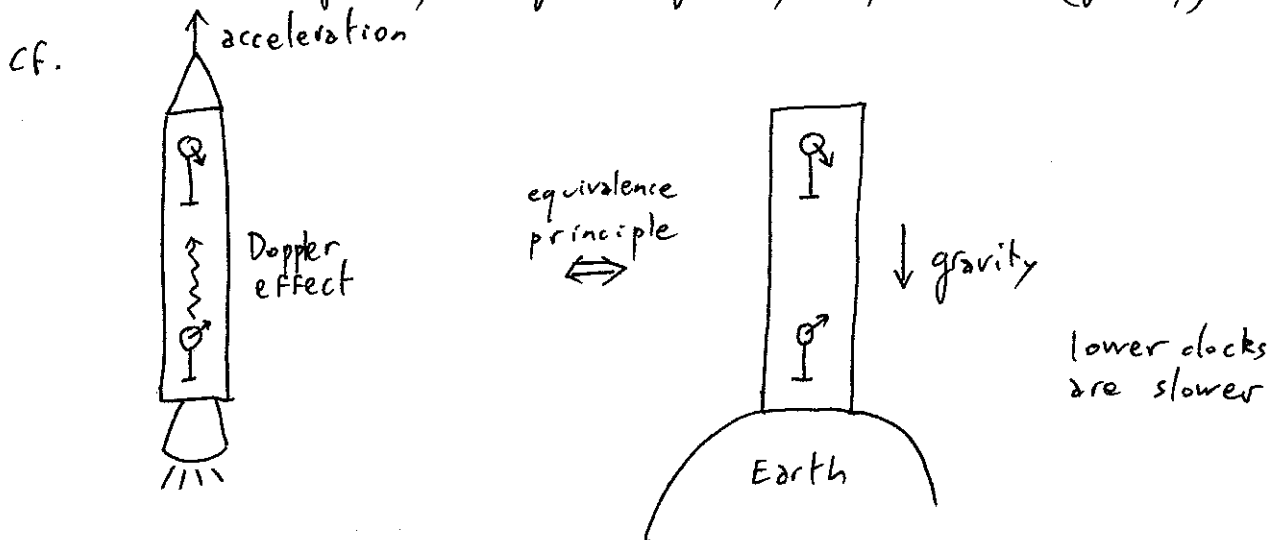 cf.
acceleration
Doppler
effect
equivalence
principle
⇔
gravity
lower clocks
are slower
Earth